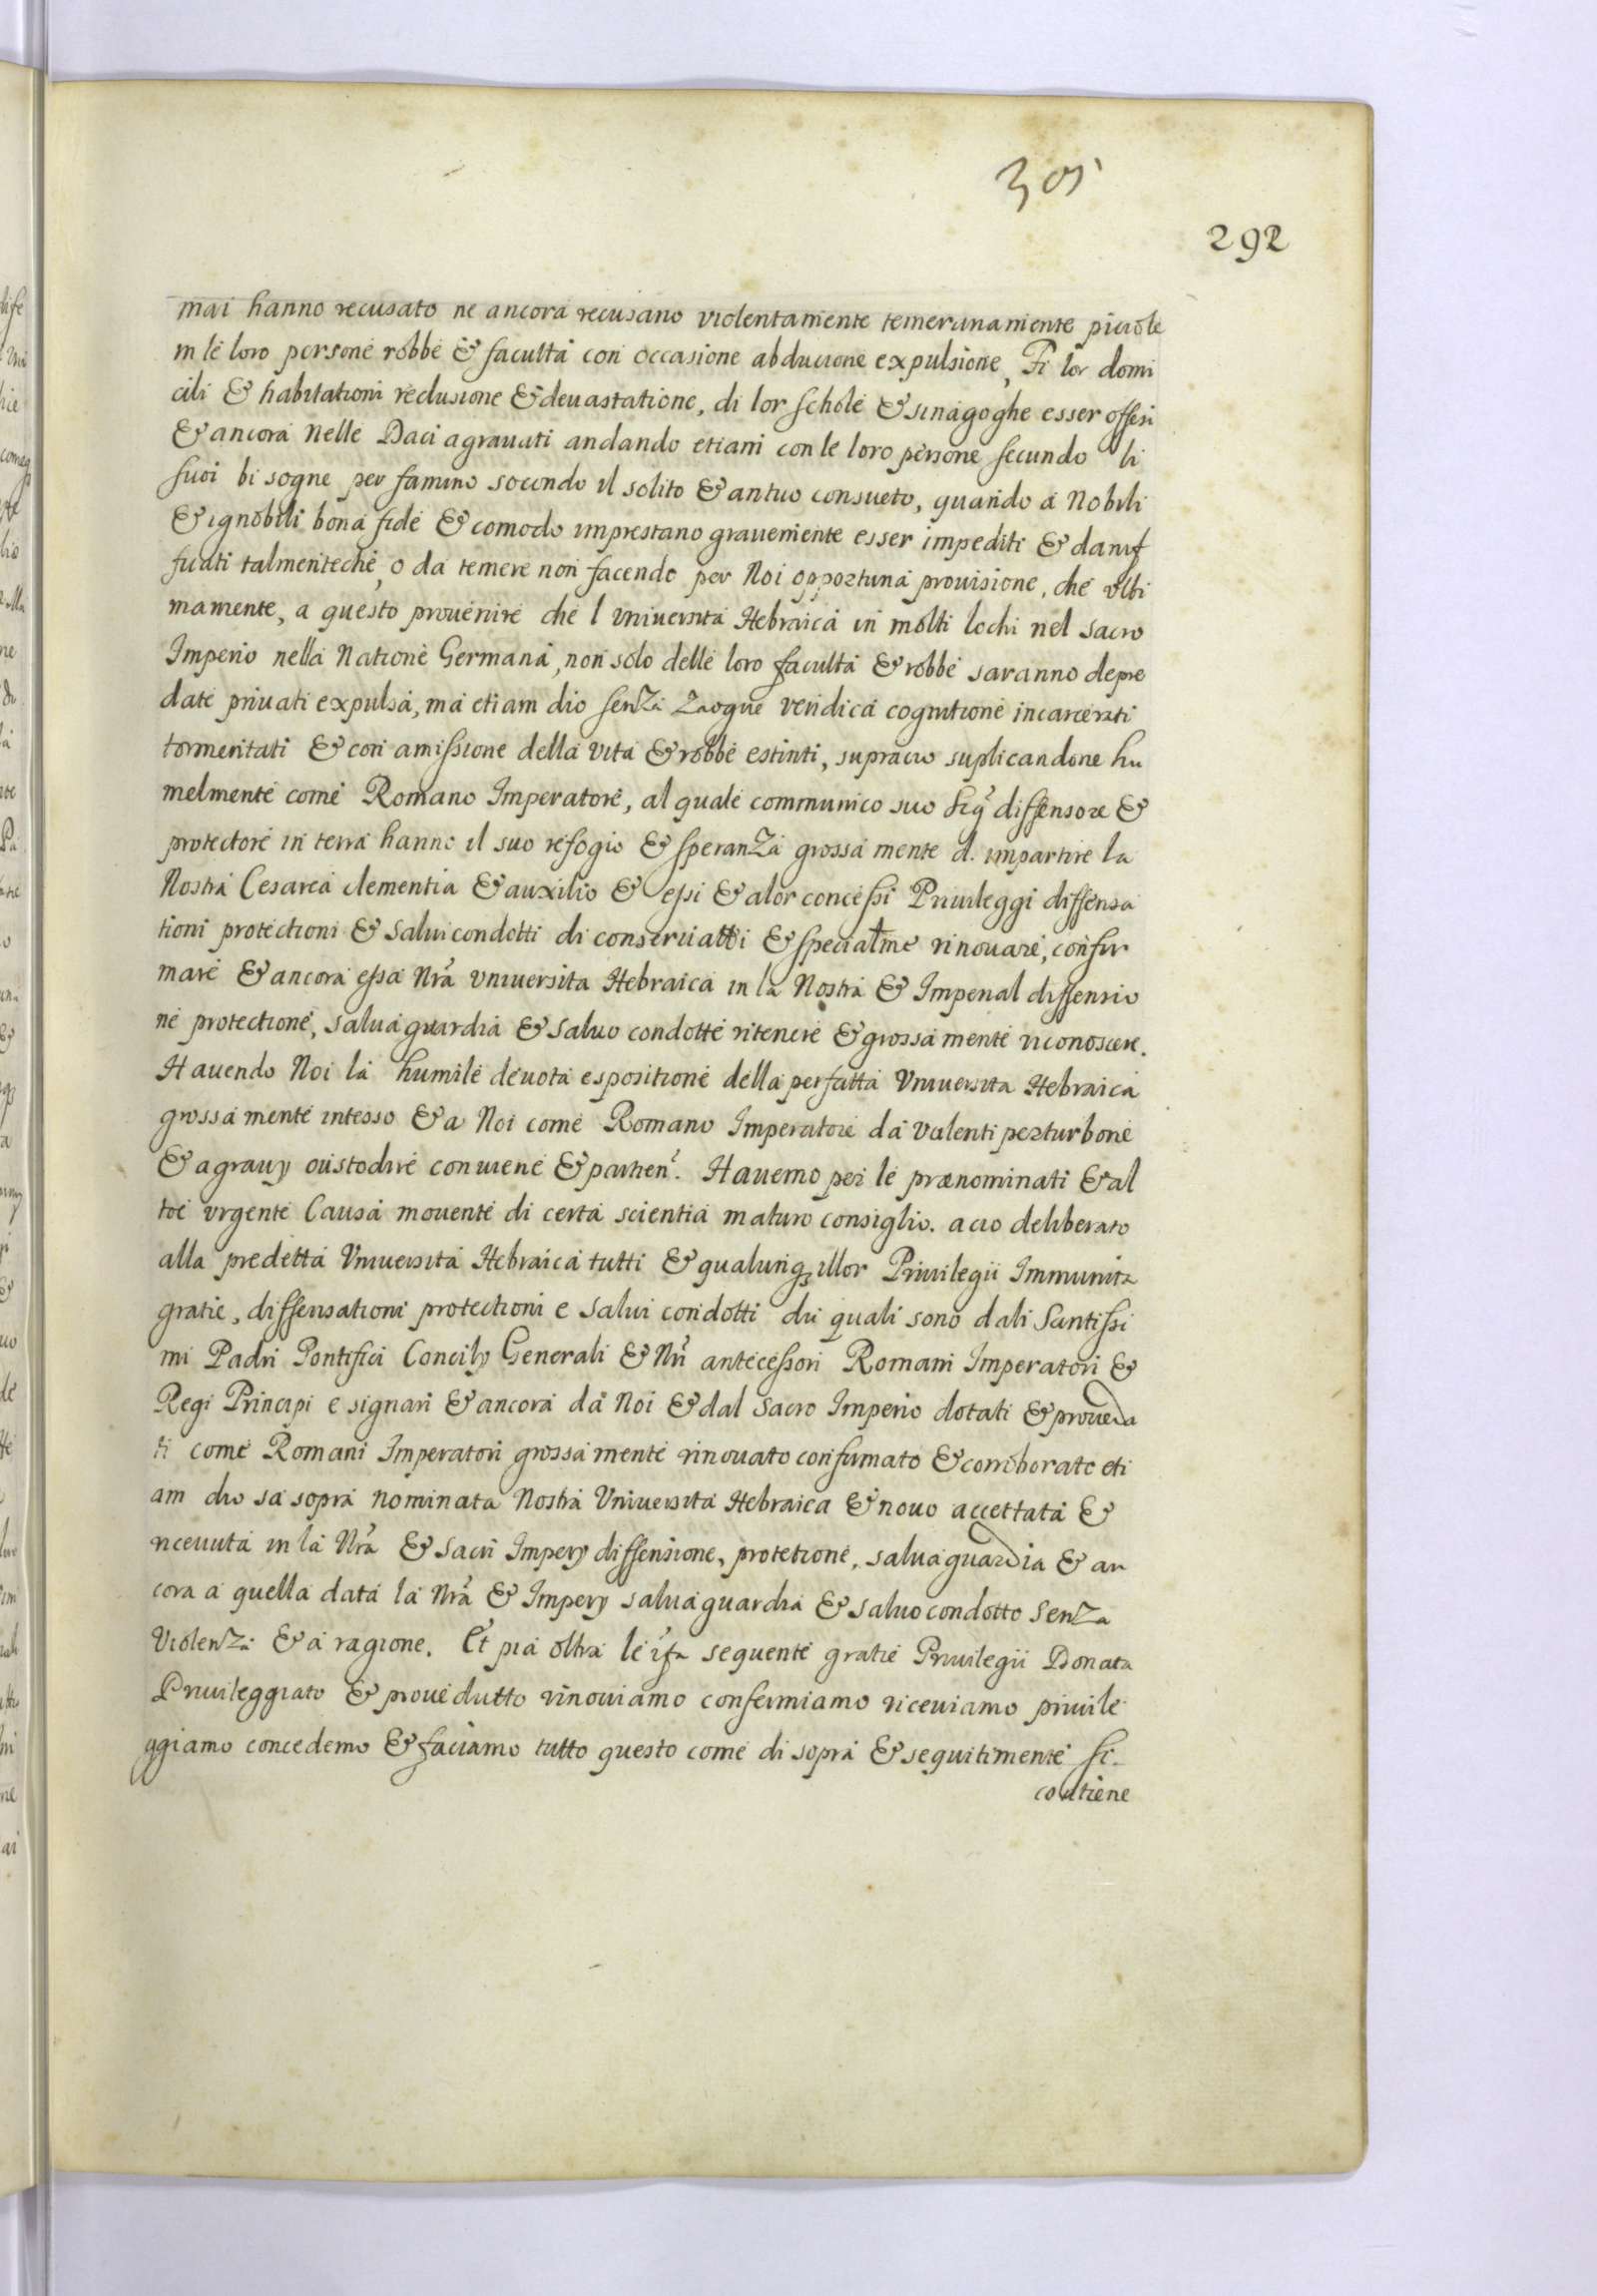 305
292
mai hanno recusato ne ancora recusano violentamente temerariamente piciole
in le loro persone robbe & faculta con occasione abducione expulsione, Fi lor domi
cili & habitationi reclusione & deuastatione, di lor schole & sinagoghe esser offesi
& ancora nelle Daci agrauati andando etiam con le loro persone secundo li
suoi bi sogne per famino socondo il solito & antuo consueto, quando a Nobili
& ignobili bona fide & comodo imprestano grauemente esser impediti & danif
ficati talmenteche, o da temere non facendo per Noi opportuna prouisione, che vlti
mamente, a questo prouenire che l vniuersita Hebraica in molti lochi nel sacro
Imperio nella Natione Germana, non solo delle loro faculta & robbe saranno depre
date priuati expulsa, ma etiam dio senza Zaogne veridica cognitione incarcerati
tormentati & con amissione della vita & robbe estinti, supracio suplicandone hu
melmente come Romano Imperatore, al quale communico suo Sigr diffensore &
protectore in terra hanno il suo refogio & speranza grossa mente d. impartire la
Nostra Cesarea clementia & auxilio & essi & alor concessi Priuileggi diffensa
tioni protectioni & saluicondotti di conseruatti & specialme rinouare, confir
mare & ancora essa Nra vniuersita Hebraica in la Nostra & Imperial diffensio
ne protectione, salua guardia & saluo condotte ritenere & grossa mente riconoscere.
Hauendo Noi la humile deuota espositione della perfatta Vniuersita Hebraica
grossa mente intesso & a Noi come Romano Imperatore da valenti perturbone
& agrauy custodire conuiene & partien. Hauemo per le prænominati & al
tre vrgente Causa mouente di certa scientia maturo consiglio. acio deliberato
alla predetta Vniuersita Hebraica tutti & qualunq illor Priuilegii Immunita
gratie, diffensationi protectioni e salui condotti du quali sono dali Santissi
mi Padri Pontifici Concily Generali & Nri antecessori Romani Imperatori &
Regi Principi e signari & ancora da Noi & dal Sacro Imperio dotati & proueda
ti come Romani Imperatori grossa mente rinouatto confirmato & corroborato eti
am dio sa sopra nominata Nostra Vniuersita Hebraica & nouo accettata &
riceuuta in la Nra & Sacri Impery diffensione, protetione, saluaguardia & an
cora a quella data la Nra & Impery salua guardia & saluo condotto senza
Violenza & a ragione. Et pia oltra le ifa sequente gratie Priuilegii Donata
Priuileggiato & prouedutto rinouiamo confermiamo riceuiamo priuile
ggiamo concedemo & faciamo tutto questo come di sopra & sequitimente si
contiene